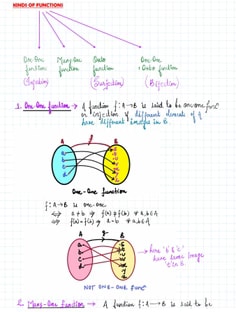 KINDS OF FUNCTIONS
One-One function (Injection)
Many-One function
Onto function (Surjection)
One-One Onto function (Bijection)
1. One-One function → A function f: A→B is said to be one-one func
or injection if different elements of A
have different images in B
A f B
One-One function
f: A→B is one-one
⇔ a ≠ b ⇒ f(a) ≠ f(b) ∀ a, b ∈ A
⇔ f(a) = f(b) ⇒ a = b ∀ a, b ∈ A
A g B
have same image
NOT ONE-ONE func
2. Many-One function → A function f: A→B is said to be